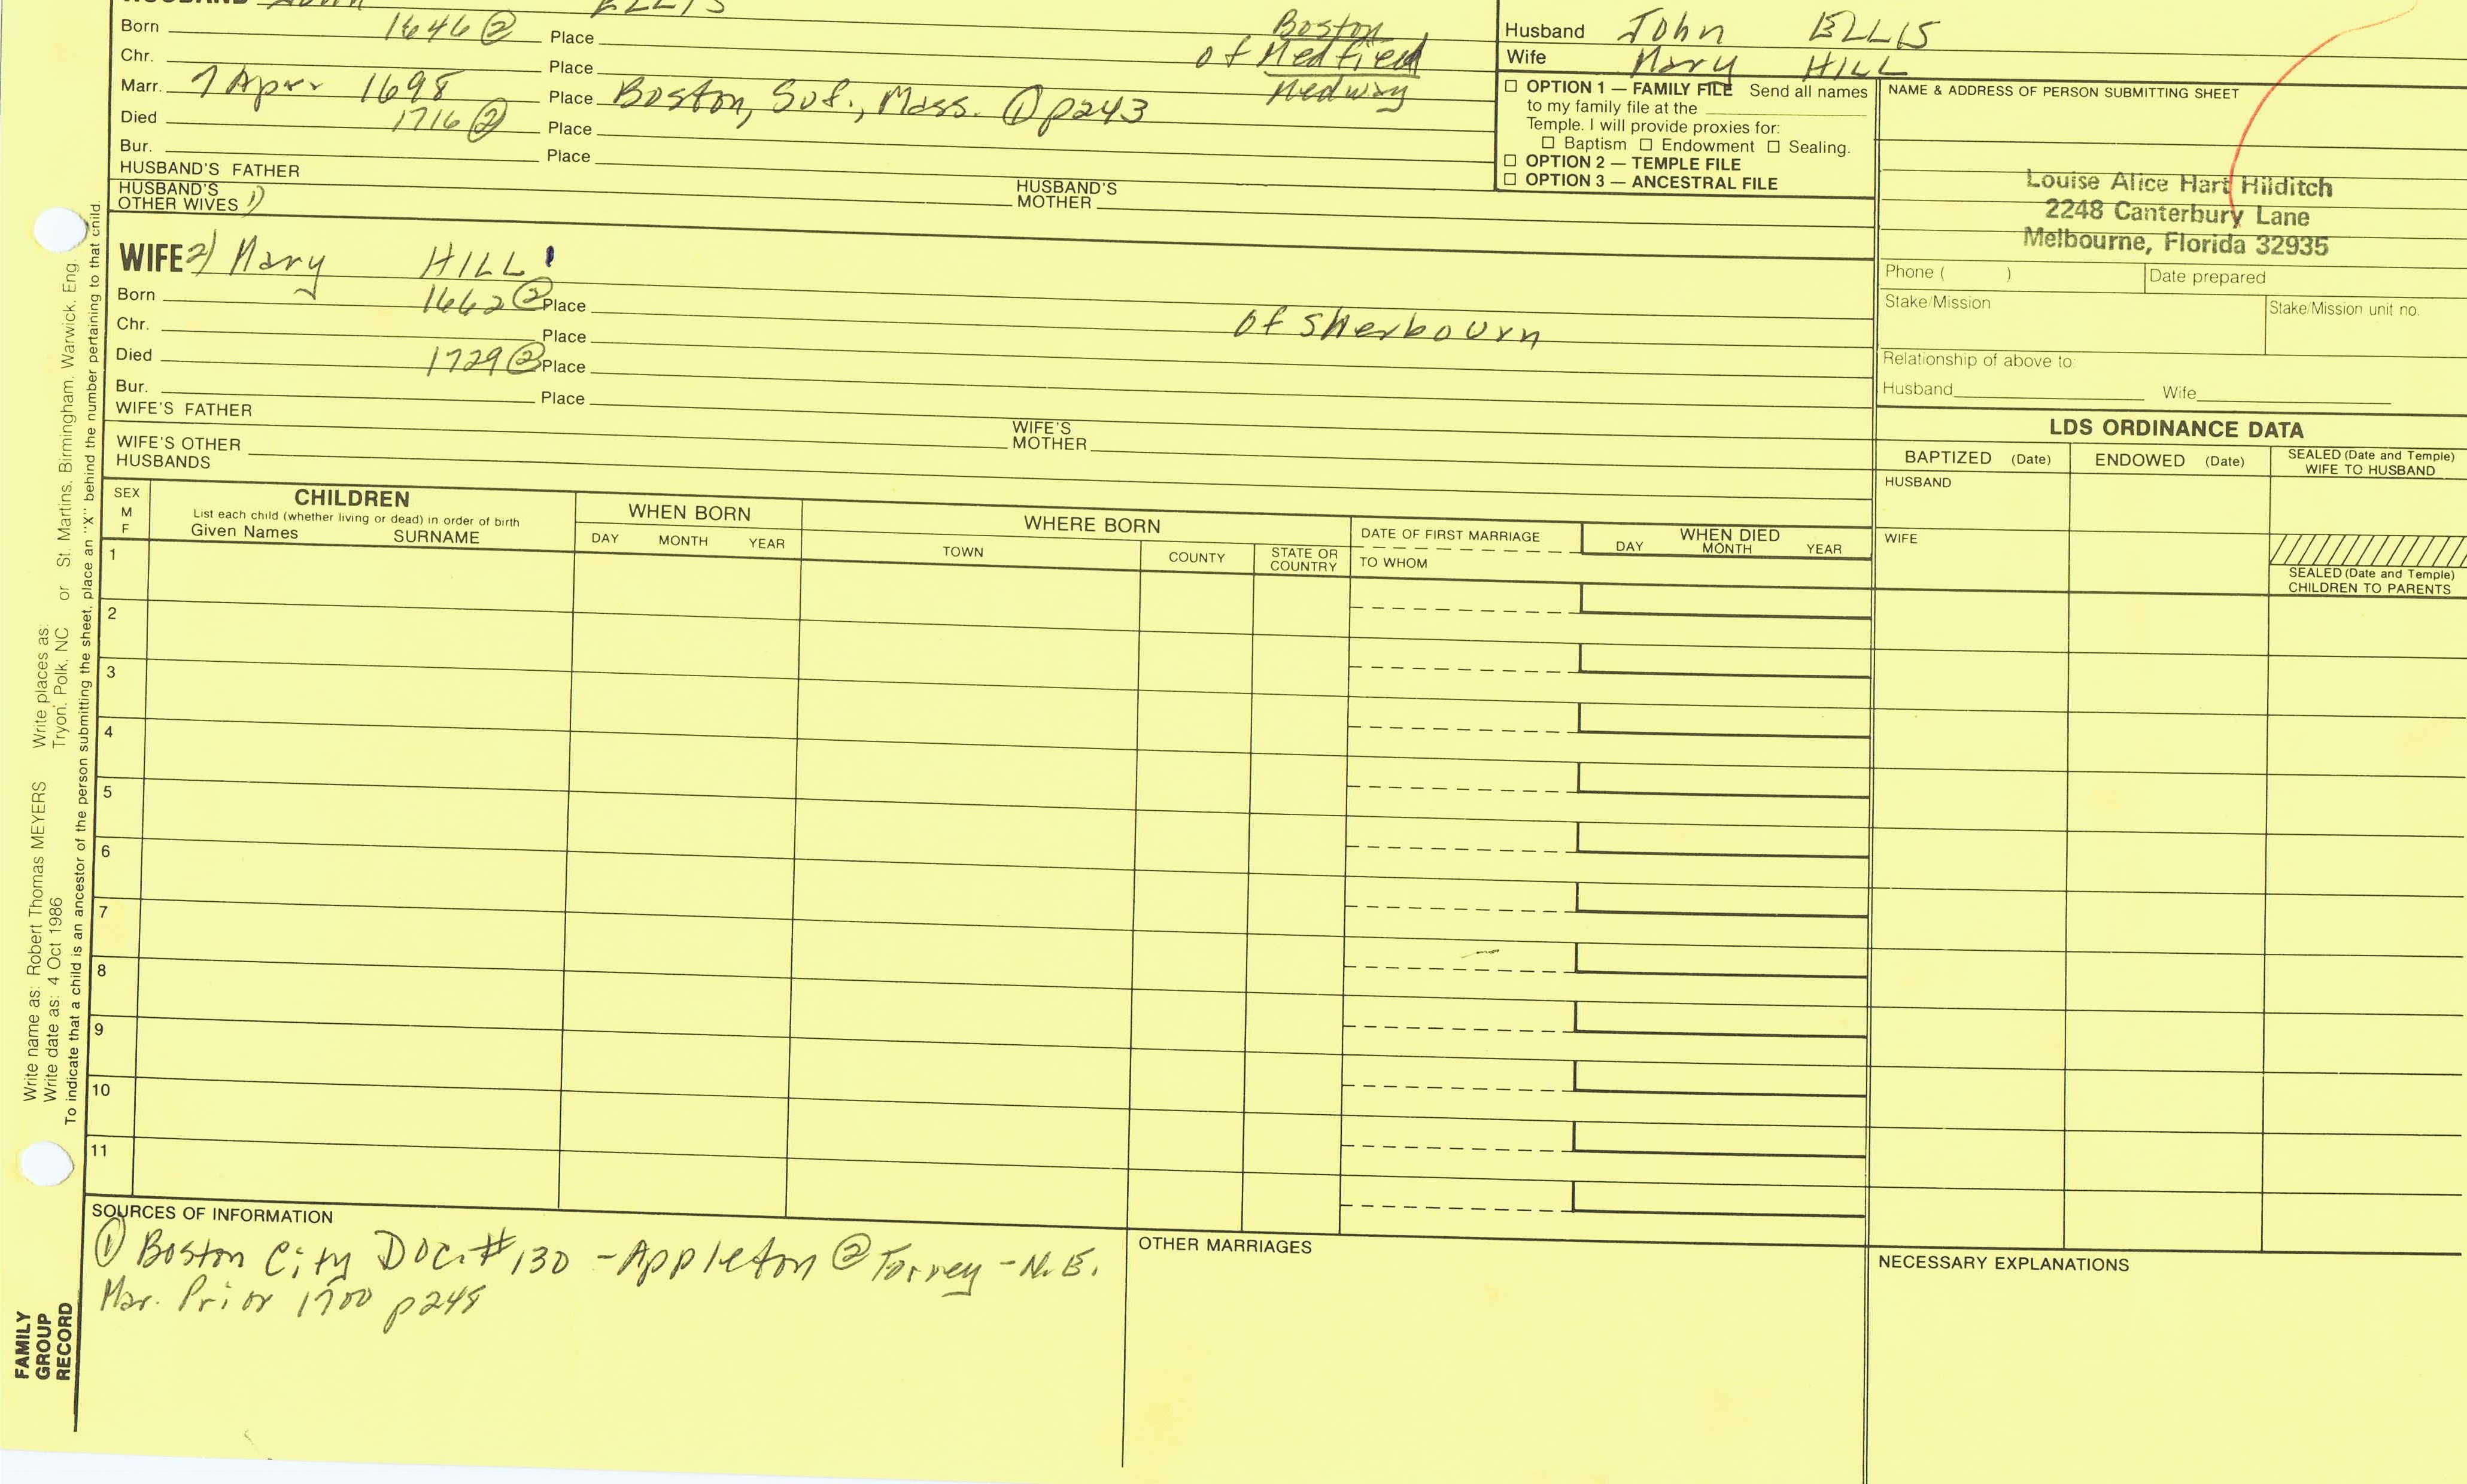 HUSBAND John ELLIS
Born 1646 ② Place Boston
Chr. Place of Medfield
Medway
Marr. 7 Apr 1698 Place Boston, Suf., Mass. ① p243
Died 1716 ② Place
Bur. Place
HUSBAND'S FATHER
HUSBAND'S MOTHER
HUSBAND'S OTHER WIVES 1)
Husband John ELLIS
Wife Mary HILL
☐ OPTION 1 — FAMILY FILE Send all names
to my family file at the
Temple. I will provide proxies for:
☐ Baptism ☐ Endowment ☐ Sealing.
☐ OPTION 2 — TEMPLE FILE
☐ OPTION 3 — ANCESTRAL FILE
NAME & ADDRESS OF PERSON SUBMITTING SHEET
Louise Alice Hart Hilditch
2248 Canterbury Lane
Melbourne, Florida 32935
Phone ( ) Date prepared
Stake/Mission Stake/Mission unit no.
Relationship of above to:
Husband Wife
WIFE 2) Mary HILL
Born 1662 ② Place
Chr. Place of Sherbourn
Died 1729 ② Place
Bur. Place
WIFE'S FATHER
WIFE'S MOTHER
WIFE'S OTHER HUSBANDS
LDS ORDINANCE DATA
BAPTIZED (Date) ENDOWED (Date) SEALED (Date and Temple)
WIFE TO HUSBAND
HUSBAND
WIFE
SEALED (Date and Temple)
CHILDREN TO PARENTS
SEX
M
F
CHILDREN
List each child (whether living or dead) in order of birth
Given Names SURNAME
WHEN BORN
DAY MONTH YEAR
WHERE BORN
TOWN COUNTY STATE OR COUNTRY
DATE OF FIRST MARRIAGE
TO WHOM
WHEN DIED
DAY MONTH YEAR
1
2
3
4
5
6
7
8
9
10
11
SOURCES OF INFORMATION
① Boston City Doc. #130 - Appleton ② Torrey - N.E.
Mar. Prior 1700 p248
OTHER MARRIAGES
NECESSARY EXPLANATIONS
Write name as: Robert Thomas MEYERS Write places as: or St. Martins, Birmingham, Warwick, Eng.
Write date as: 4 Oct 1986 Tryon, Polk, NC
To indicate that a child is an ancestor of the person submitting the sheet, place an "X" behind the number pertaining to that child.
FAMILY
GROUP
RECORD